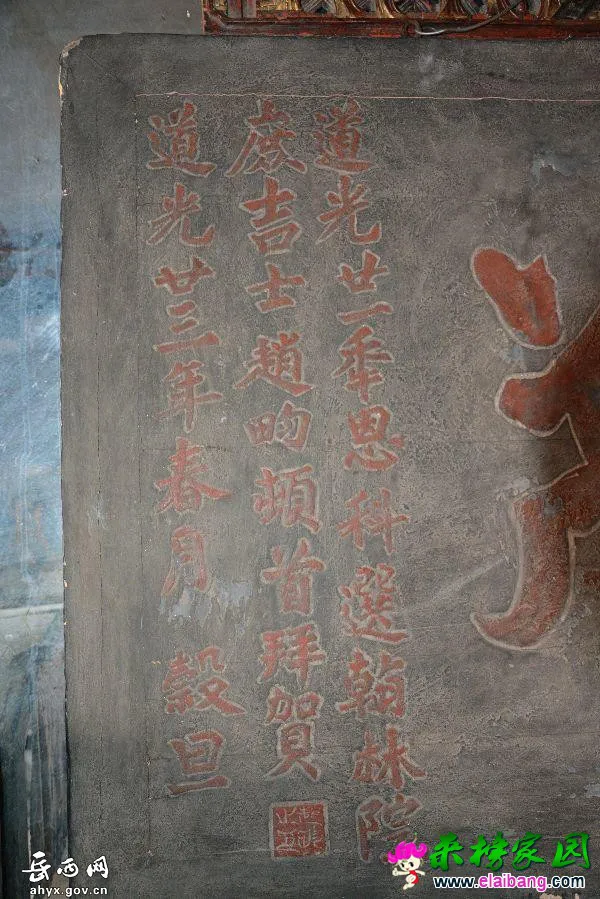 道光廿一年恩科選翰林院
庶吉士趙畇頓首拜賀
道光廿三年春月 穀旦
岳西网
ahyx.gov.cn
采榜家园
www.elaibang.com